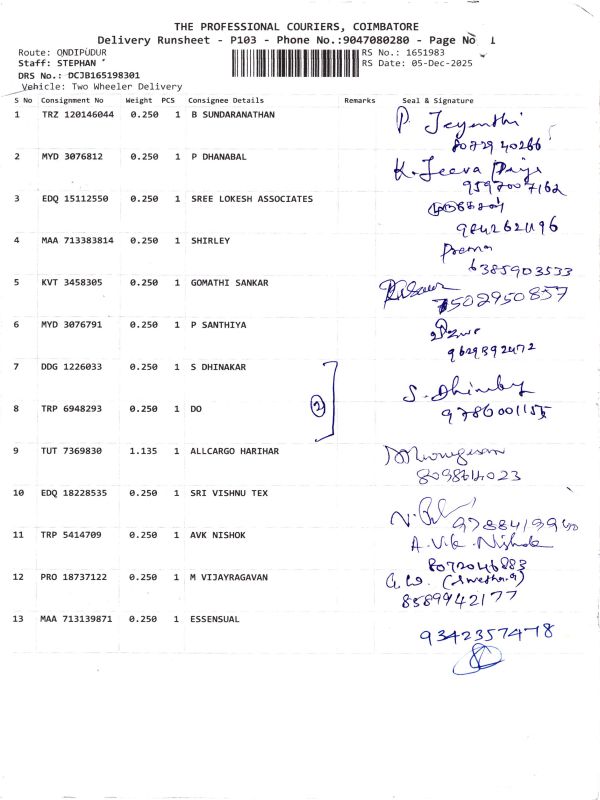 THE PROFESSIONAL COURIERS, COIMBATORE
Delivery Runsheet - P103 - Phone No.:9047080280 - Page No 1
Route: ONDIPUDUR RS No.: 1651983
Staff: STEPHAN RS Date: 05-Dec-2025
DRS No.: DCJB165198301
Vehicle: Two Wheeler Delivery
S No Consignment No Weight PCS Consignee Details Remarks Seal & Signature
1 TRZ 120146044 0.250 1 B SUNDARANATHAN P. Jeyanthi
8072940266
2 MYD 3076812 0.250 1 P DHANABAL K. Jeeva Priya
9597007162
3 EDQ 15112550 0.250 1 SREE LOKESH ASSOCIATES
9842621196
4 MAA 713383814 0.250 1 SHIRLEY Prema
6385903533
5 KVT 3458305 0.250 1 GOMATHI SANKAR
7502950857
6 MYD 3076791 0.250 1 P SANTHIYA
9629392472
7 DDG 1226033 0.250 1 S DHINAKAR
8 TRP 6948293 0.250 1 DO 2 S.
9786001155
9 TUT 7369830 1.135 1 ALLCARGO HARIHAR
8098614023
10 EDQ 18228535 0.250 1 SRI VISHNU TEX
11 TRP 5414709 0.250 1 AVK NISHOK A.V.K. Nishok
8072046883
12 PRO 18737122 0.250 1 M VIJAYRAGAVAN
8589942177
13 MAA 713139871 0.250 1 ESSENSUAL
9342357478